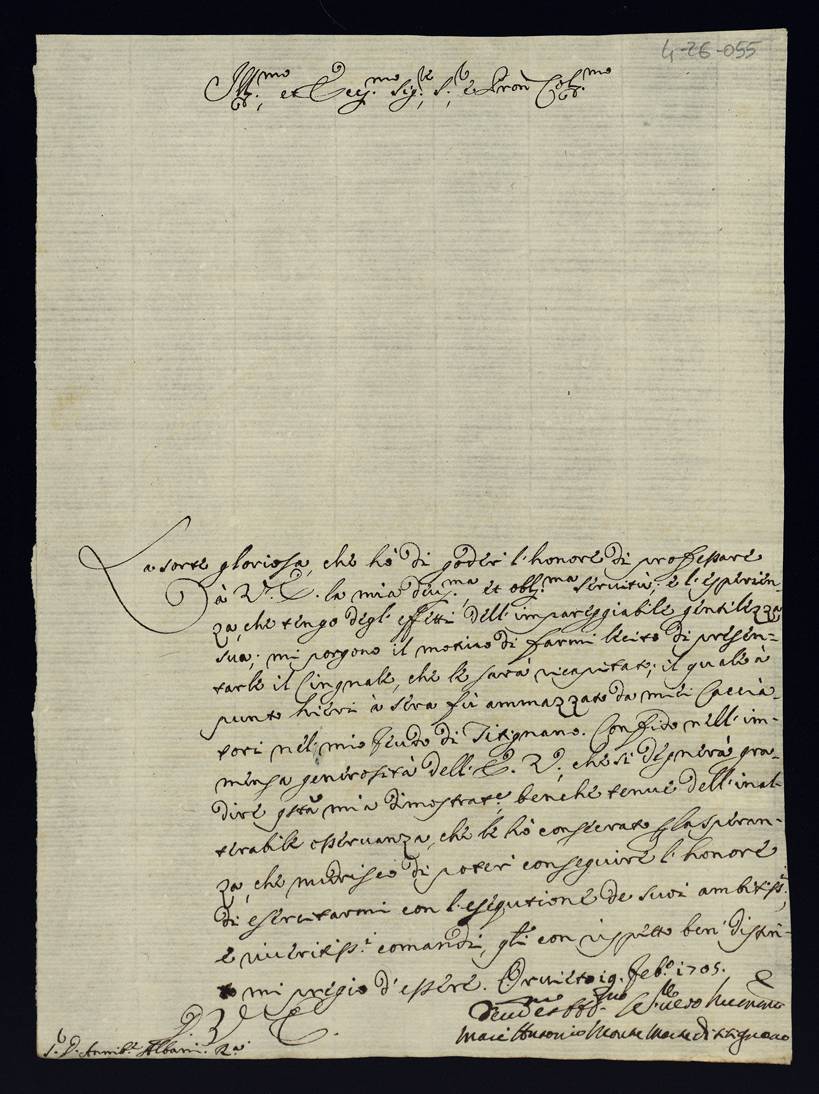 4-26-055
Ill.mo et Ecc.mo Sig.re S.r e Pron Col.mo
La sorte gloriosa, che hò di goder l'honore di professare
à V. E. la mia deu.ma et obl.ma seruitù, e l'esperien=
za, che tengo degl'effetti dell'impareggiabile gentilezza
sua, mi porgono il motiuo di farmi lecito di presen=
tarle il Cingnale, che le sarà recapitato; il quale à
punto hieri à sera fù ammazzato da miei Caccia=
tori nel mio feudo di Titignano. Confido nell'im=
mensa generosità dell'E. V., che si degnerà gra=
dire q.sta mia dimostrat.e, benche tenue dell'inal=
terabile osseruanza, che le hò consecrato p la speran=
za, che nutrisco di poter conseguire l'honore
di esercitarmi con l'esequtione de suoi ambitiss.i,
e riueritiss.i comandi, con rispetto ben distin=
to mi pregio d'essere. Oruieto 19. Feb.o 1705.
D. V. E.
Deu.mo et obb.mo Se.re uero
S.r D. Annib.e Albani. R.a
Marc Antonio Monte Marte di Titignano